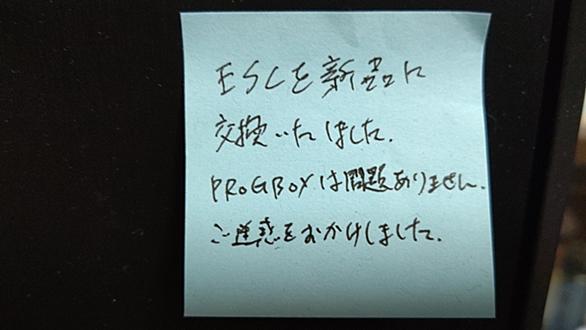 ESCを新品に
交換いたしました.
PROGBOXは問題ありません.
ご迷惑をおかけしました.